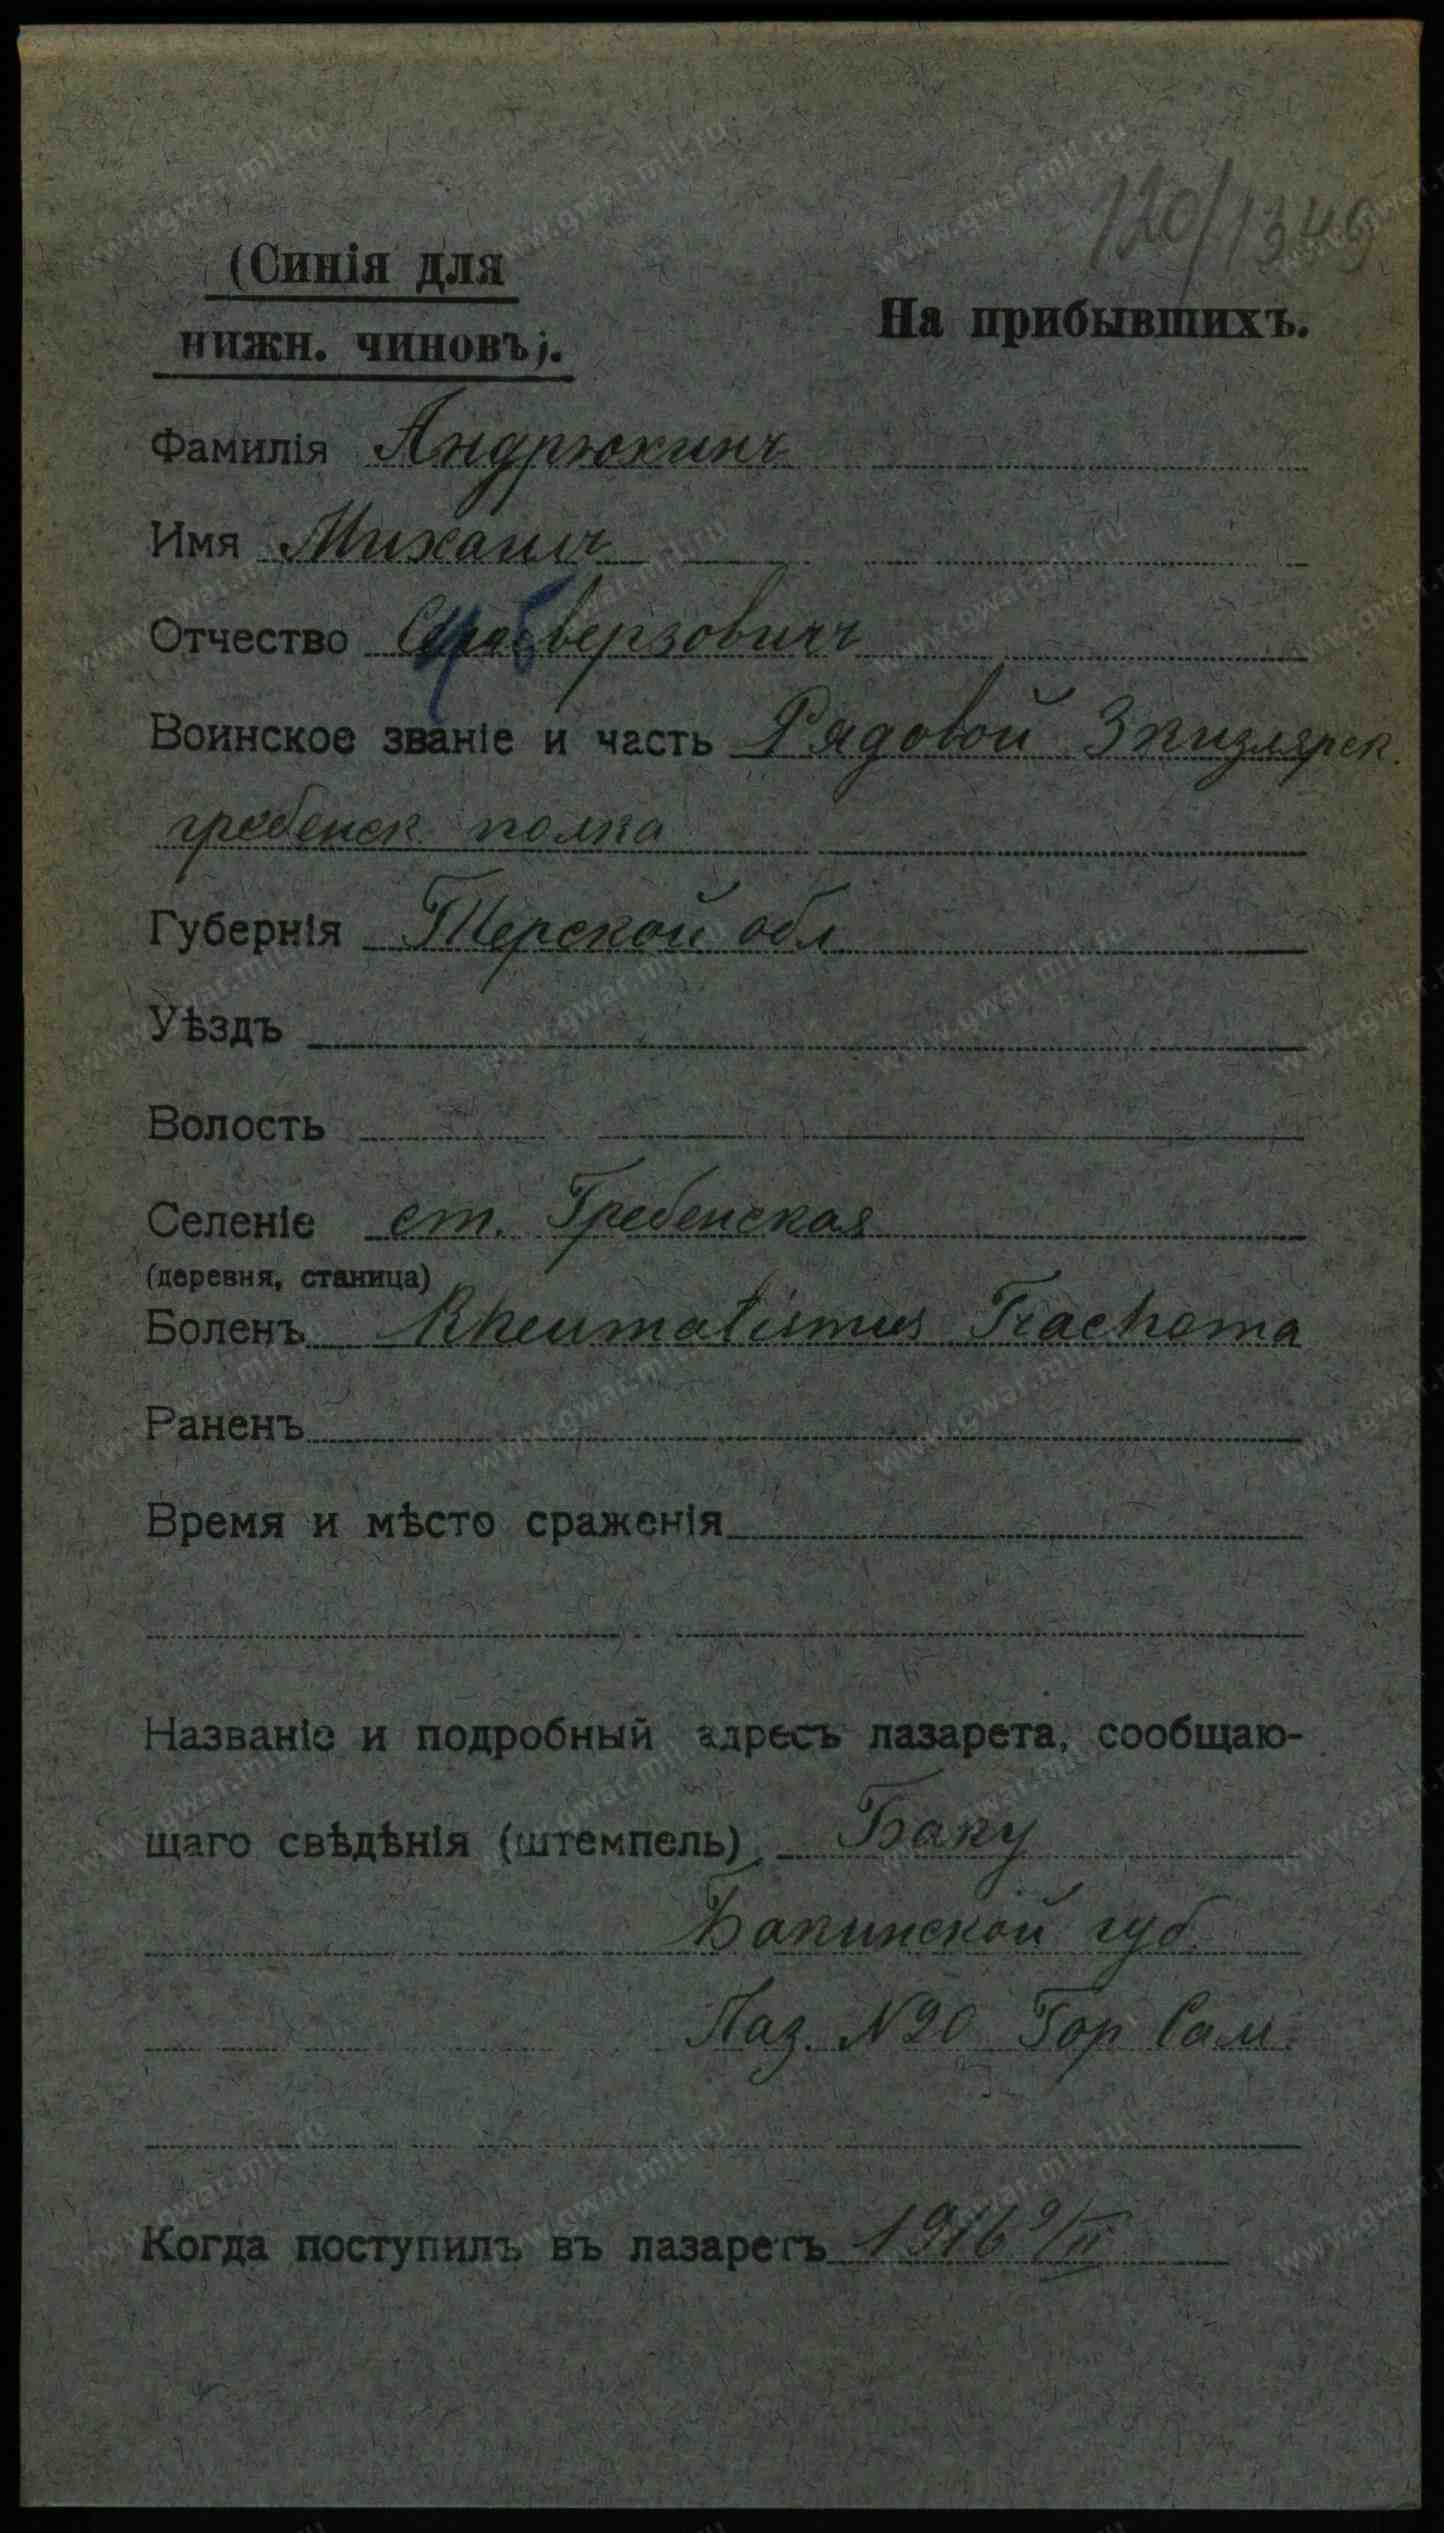 120/1349
(Синія для
нижн. чиновъ).
На прибывшихъ.
Фамилія Андрюхинъ
Имя Михаилъ
Отчество
Воинское званіе и часть Рядовой 3 кизлярск.
гребенск полка
Губернія Терской обл
Уѣздъ
Волость
Селеніе ст. Гребенская
(деревня, станица)
Боленъ Rheumatismus Trachoma
Раненъ
Время и мѣсто сраженія
Названіе и подробный адресъ лазарета, сообщаю-
щаго свѣдѣнія (штемпель) Баку
Бакинской губ.
Лаз. №20 Гор Сам.
Когда поступилъ въ лазаретъ 1916 9/II
www.gwar.mil.ru